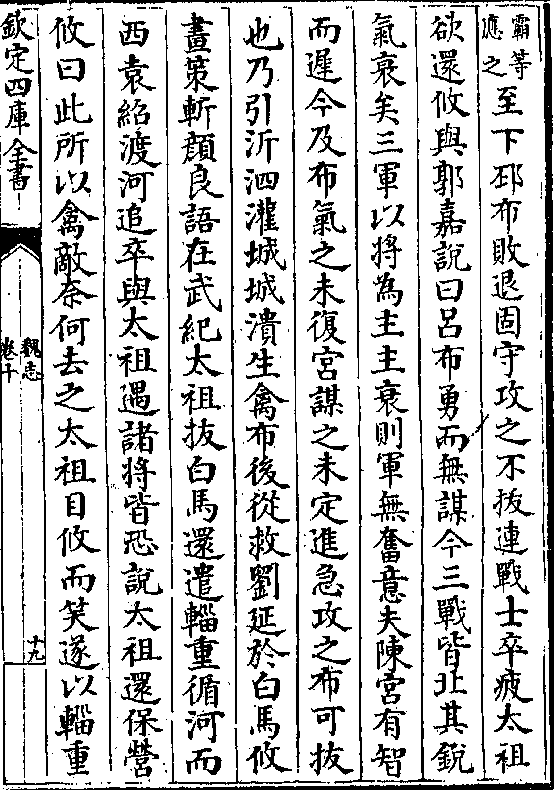 霸等應之至下邳布敗退固守攻之不拔連戰士卒疲太祖
欲還攸與郭嘉說曰呂布勇而無謀今三戰皆北其銳
氣衰矣三軍以將為主主衰則軍無奮意夫陳宮有智
而遲今及布氣之未復宮謀之未定進急攻之布可拔
也乃引沂泗灌城城潰生禽布後從救劉延於白馬攸
畫策斬顔良語在武紀太祖拔白馬還遣輜重循河而
西袁紹渡河追卒與太祖遇諸將皆恐說太祖還保營
攸曰此所以禽敵奈何去之太祖目攸而笑遂以輜重
欽定四庫全書
魏志
卷十
十九